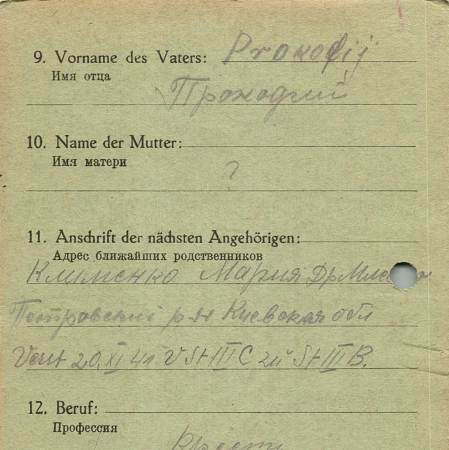 9. Vorname des Vaters: Prokofij
Имя отца
Прокофий
10. Name der Mutter:
Имя матери
?
11. Anschrift der nächsten Angehörigen:
Адрес ближайших родственников
Клименко Мария
Петровский р-н Киевская обл
20 XI 41 V St III C zu St III B.
12. Beruf:
Профессия